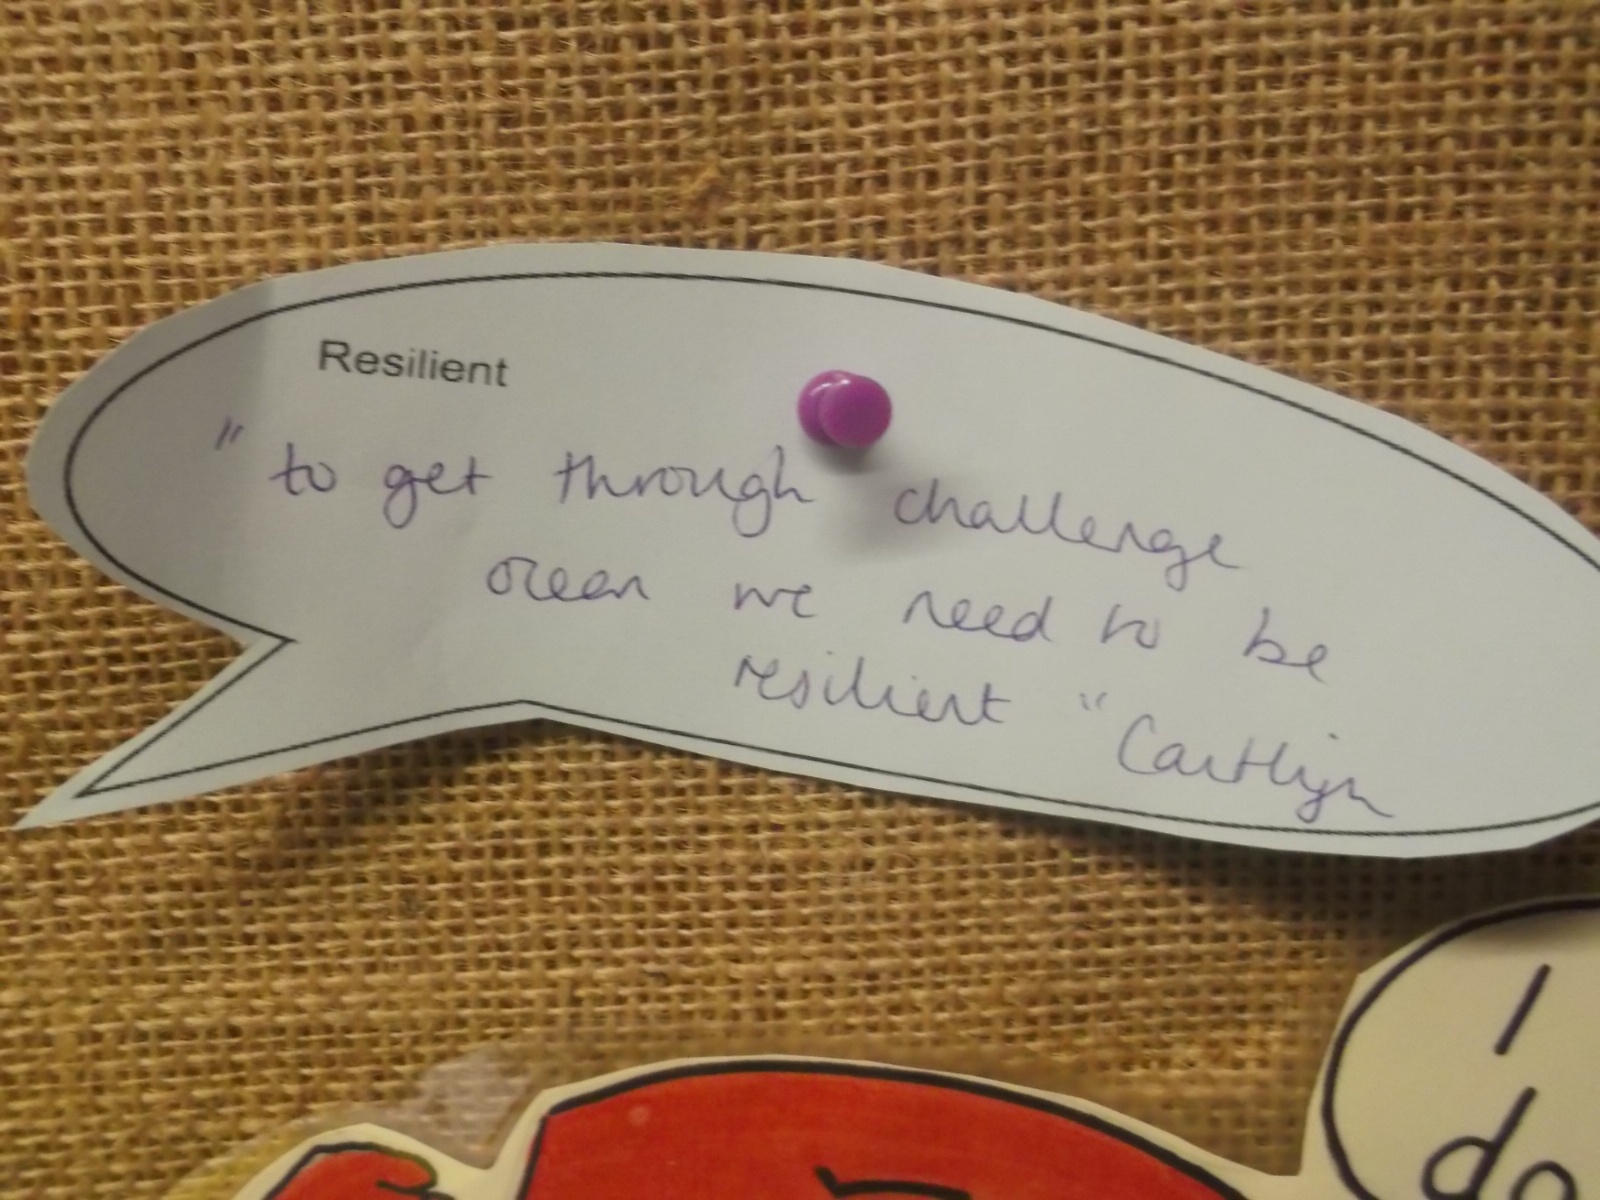 Resilient
" to get through challenge
ocean we need to be
resilient " Caitlyn
I
do